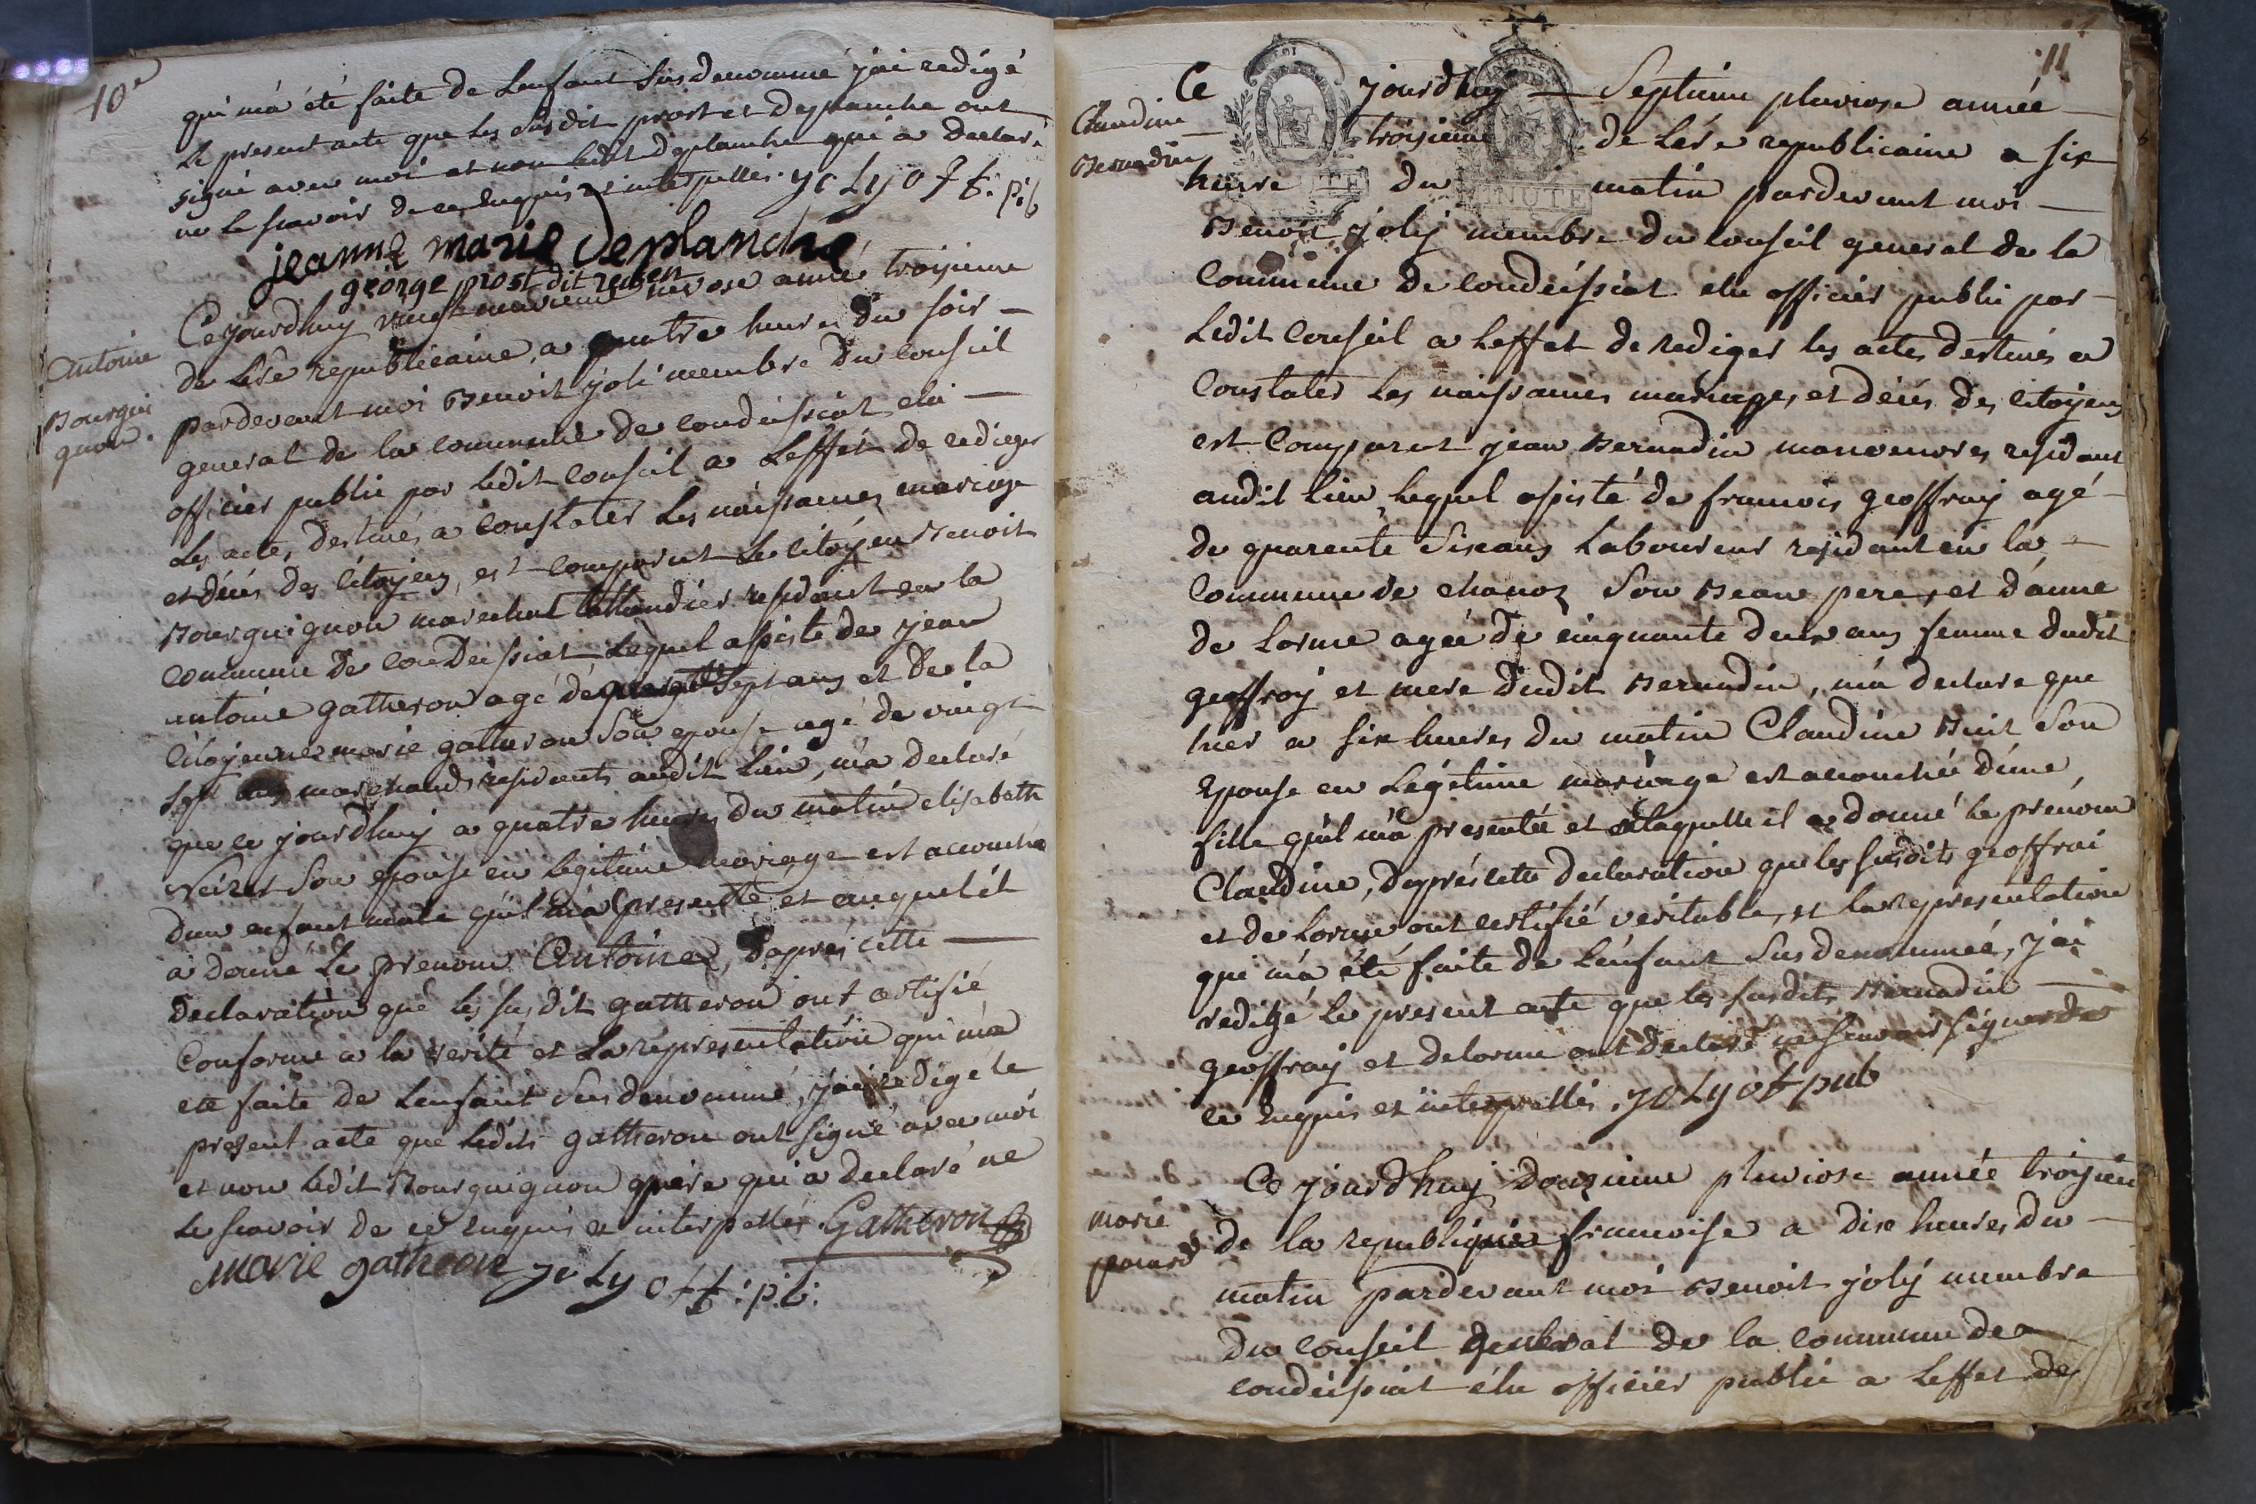 10e
qui m'a été faite de Lenfant Susdenommé j'ai redigé
Le present acte que les susdit prost et deplanche ont
signé avec moi et non ledit deplanche qui a declaré
ne le scavoir de ce enquis et interpellés. joly off: p:b
jeanne marie deplanche
george prost dit
Antoine
Bourgui
gnon.
Ce jourdhuy vingt neuvieme nivose année troisieme
de Lére republicaine, a quatre heures du soir
pardevant moi Benoit joli membre du conseil
general de la commune de condeissiat elu
officier public par ledit conseil a Leffét de rediger
Les actes destinés a constater Les naissances mariage
et décés des citoÿens, est comparut Le citoÿen Benoit
Bourguignon marechal residant en la
commune de condeissiat Lequel assisté de jean
antoine gatheron agé de sept ans et de la
citoÿenne marie gatheron son epouse agé de vingt
sept ans marchands residants audit Lieu, m'a declaré
que ce jourdhuÿ a quatre heures du matin elisabeth
son epouse en legitime mariage est accouché
dun enfant male quil m'a presenté et auquel il
a donné Le prenom Antoine, d'aprés cette
declaration que les susdit gatheron ont certifié
conforme a la verité et La représentation qui m'a
eté faite de Lenfant Susdenommé, j'ai redigé le
present acte que ledits gatheron ont signé avec moi
et non ledit Bourguignon pere qui a declaré ne
Le scavoir de ce enquis et interpellés. Gatheron
marie gatheron joly off: p:b:
11
Claudine
Bernadin
Ce jourdhuÿ Septieme pluviose année
troisieme de Lére republicaine a six
heure du matin pardevant moi
MINUTE
Benoit joly membre du conseil general de la
Commune de Condeissiat elu officier public par
Ledit Conseil a Leffet de rediger les actes destinés a
Constater Les naissances mariages, et décés des citoÿens
est Comparut jean Bernadin manoeuvres residant
audit lieu, lequel assisté de francois geoffray agé
de quarente Six ans Laboureur residant en la
Commune de chanoz Son Beau pere, et d'anne
de Lorme agée de cinquante deux ans femme dudit
geoffroy et mere dudit Bernadin, m'a declare que
hier a six heures du matin Claudine Buit Son
Epouse en Légitime mariage est accouchée d'une
fille qu'il m'a presentée et a laquelle il a donné le prénom
Claudine, d'aprés cette declaration que les susdits geoffrai
et de Lorme ont certifié veritable, et La representation
qui m'a été faite de Lénfant Susdenommée, j'ai
redigé Le present acte que les susdits Bernadin
geoffray et delorme ont declaré ne scavoir signer de
ce enquis et interpellés. joly off pub
marie
pouard
Ce jourdhuy Douzieme pluviose année troisiem
de la republique francoise a dix heures du
matin pardevant moi Benoit jolÿ membre
du conseil general de la commune de
condeissiat élu officier public a Leffet de